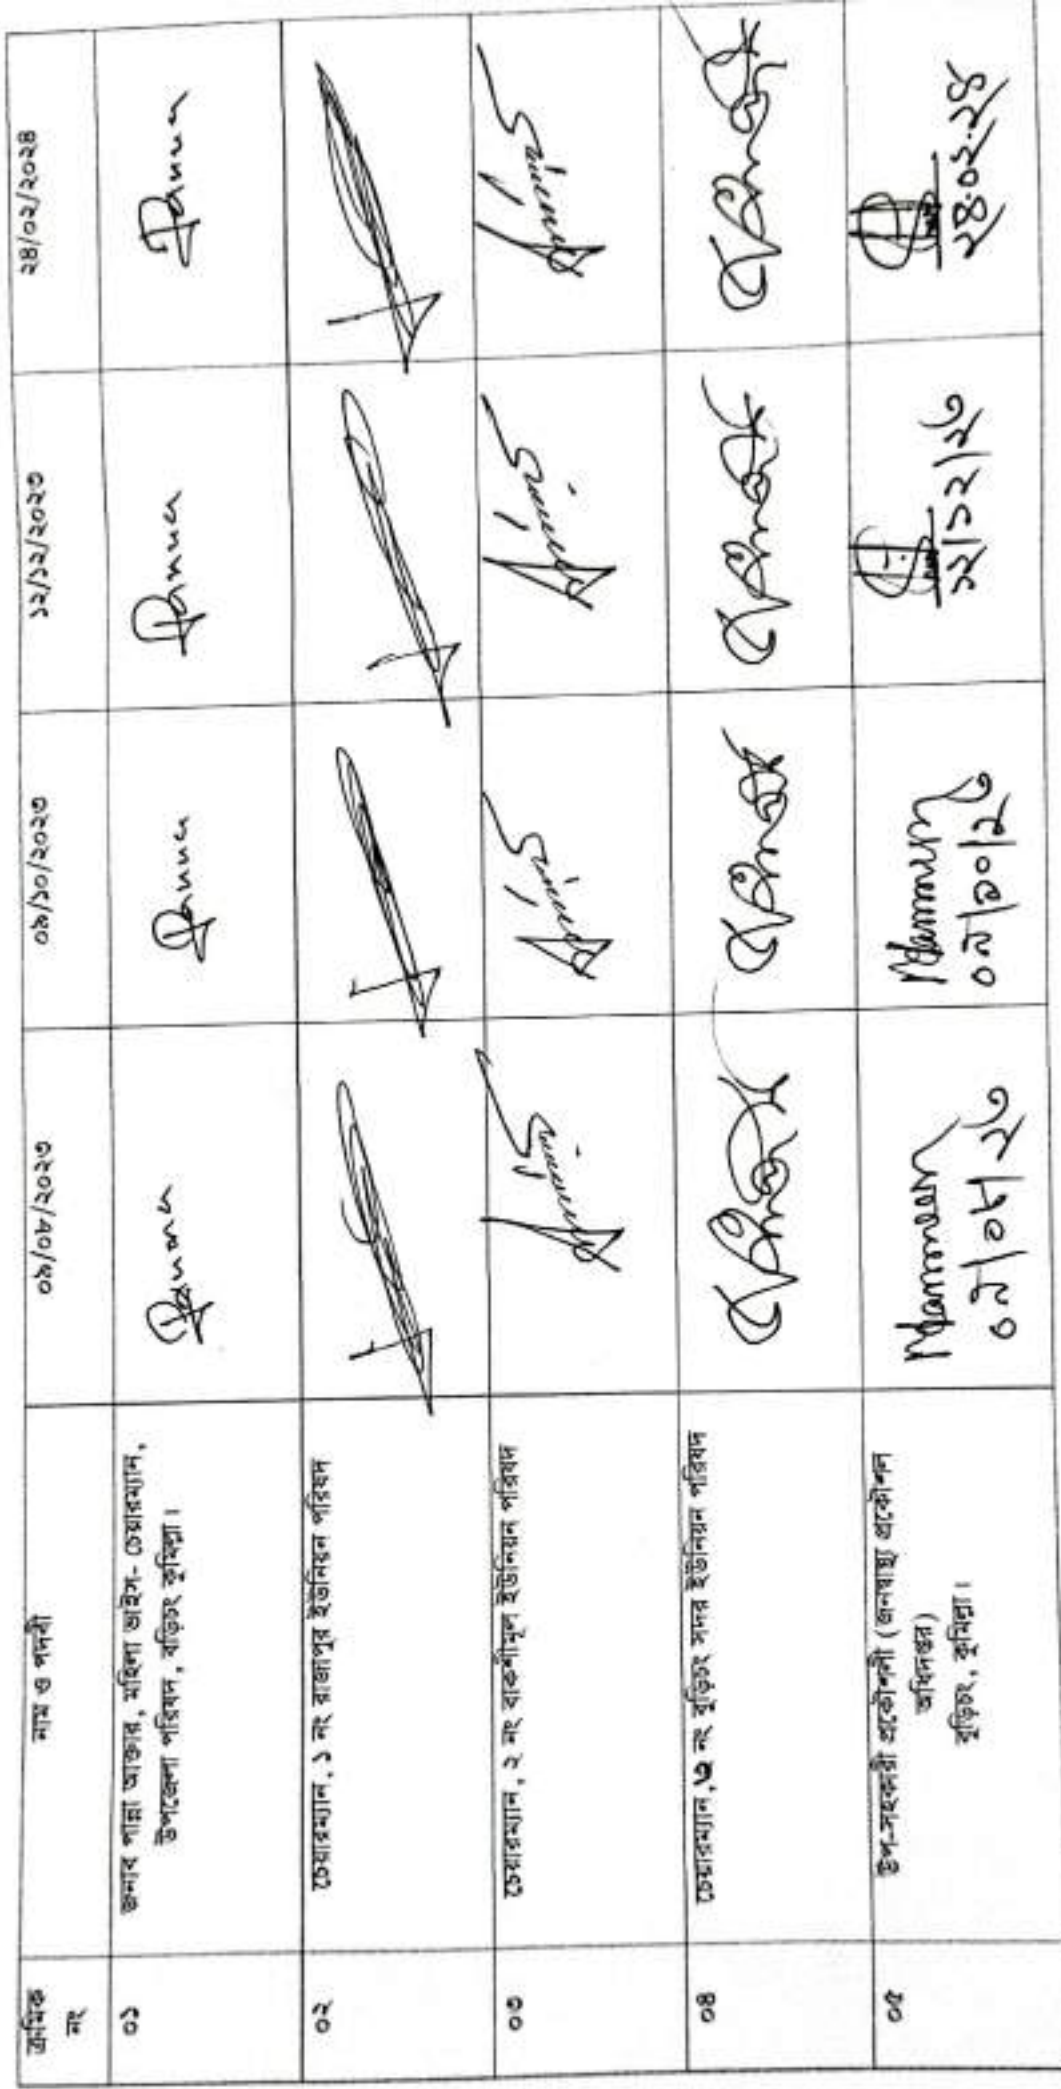 ক্রমিক নং	নাম ও পদবী	০৯/০৮/২০২৩	০৯/১০/২০২৩	১২/১২/২০২৩	২৪/০২/২০২৪
০১	জনাব পান্না আক্তার, মহিলা ভাইস- চেয়ারম্যান,
উপজেলা পরিষদ, বুড়িচং কুমিল্লা।	Panna	Panna	Panna	Panna
০২	চেয়ারম্যান, ১ নং রাজাপুর ইউনিয়ন পরিষদ
০৩	চেয়ারম্যান, ২ নং বাকশীমুল ইউনিয়ন পরিষদ
০৪	চেয়ারম্যান, ৩ নং বুড়িচং সদর ইউনিয়ন পরিষদ
০৫	উপ-সহকারী প্রকৌশলী (জনস্বাস্থ্য প্রকৌশল
অধিদপ্তর)
বুড়িচং, কুমিল্লা।	০৯/০৮/২৩	০৯/১০/২৩	১২/১২/২৩	২৪.০২.২৪